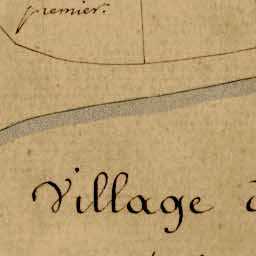 premier.
Village